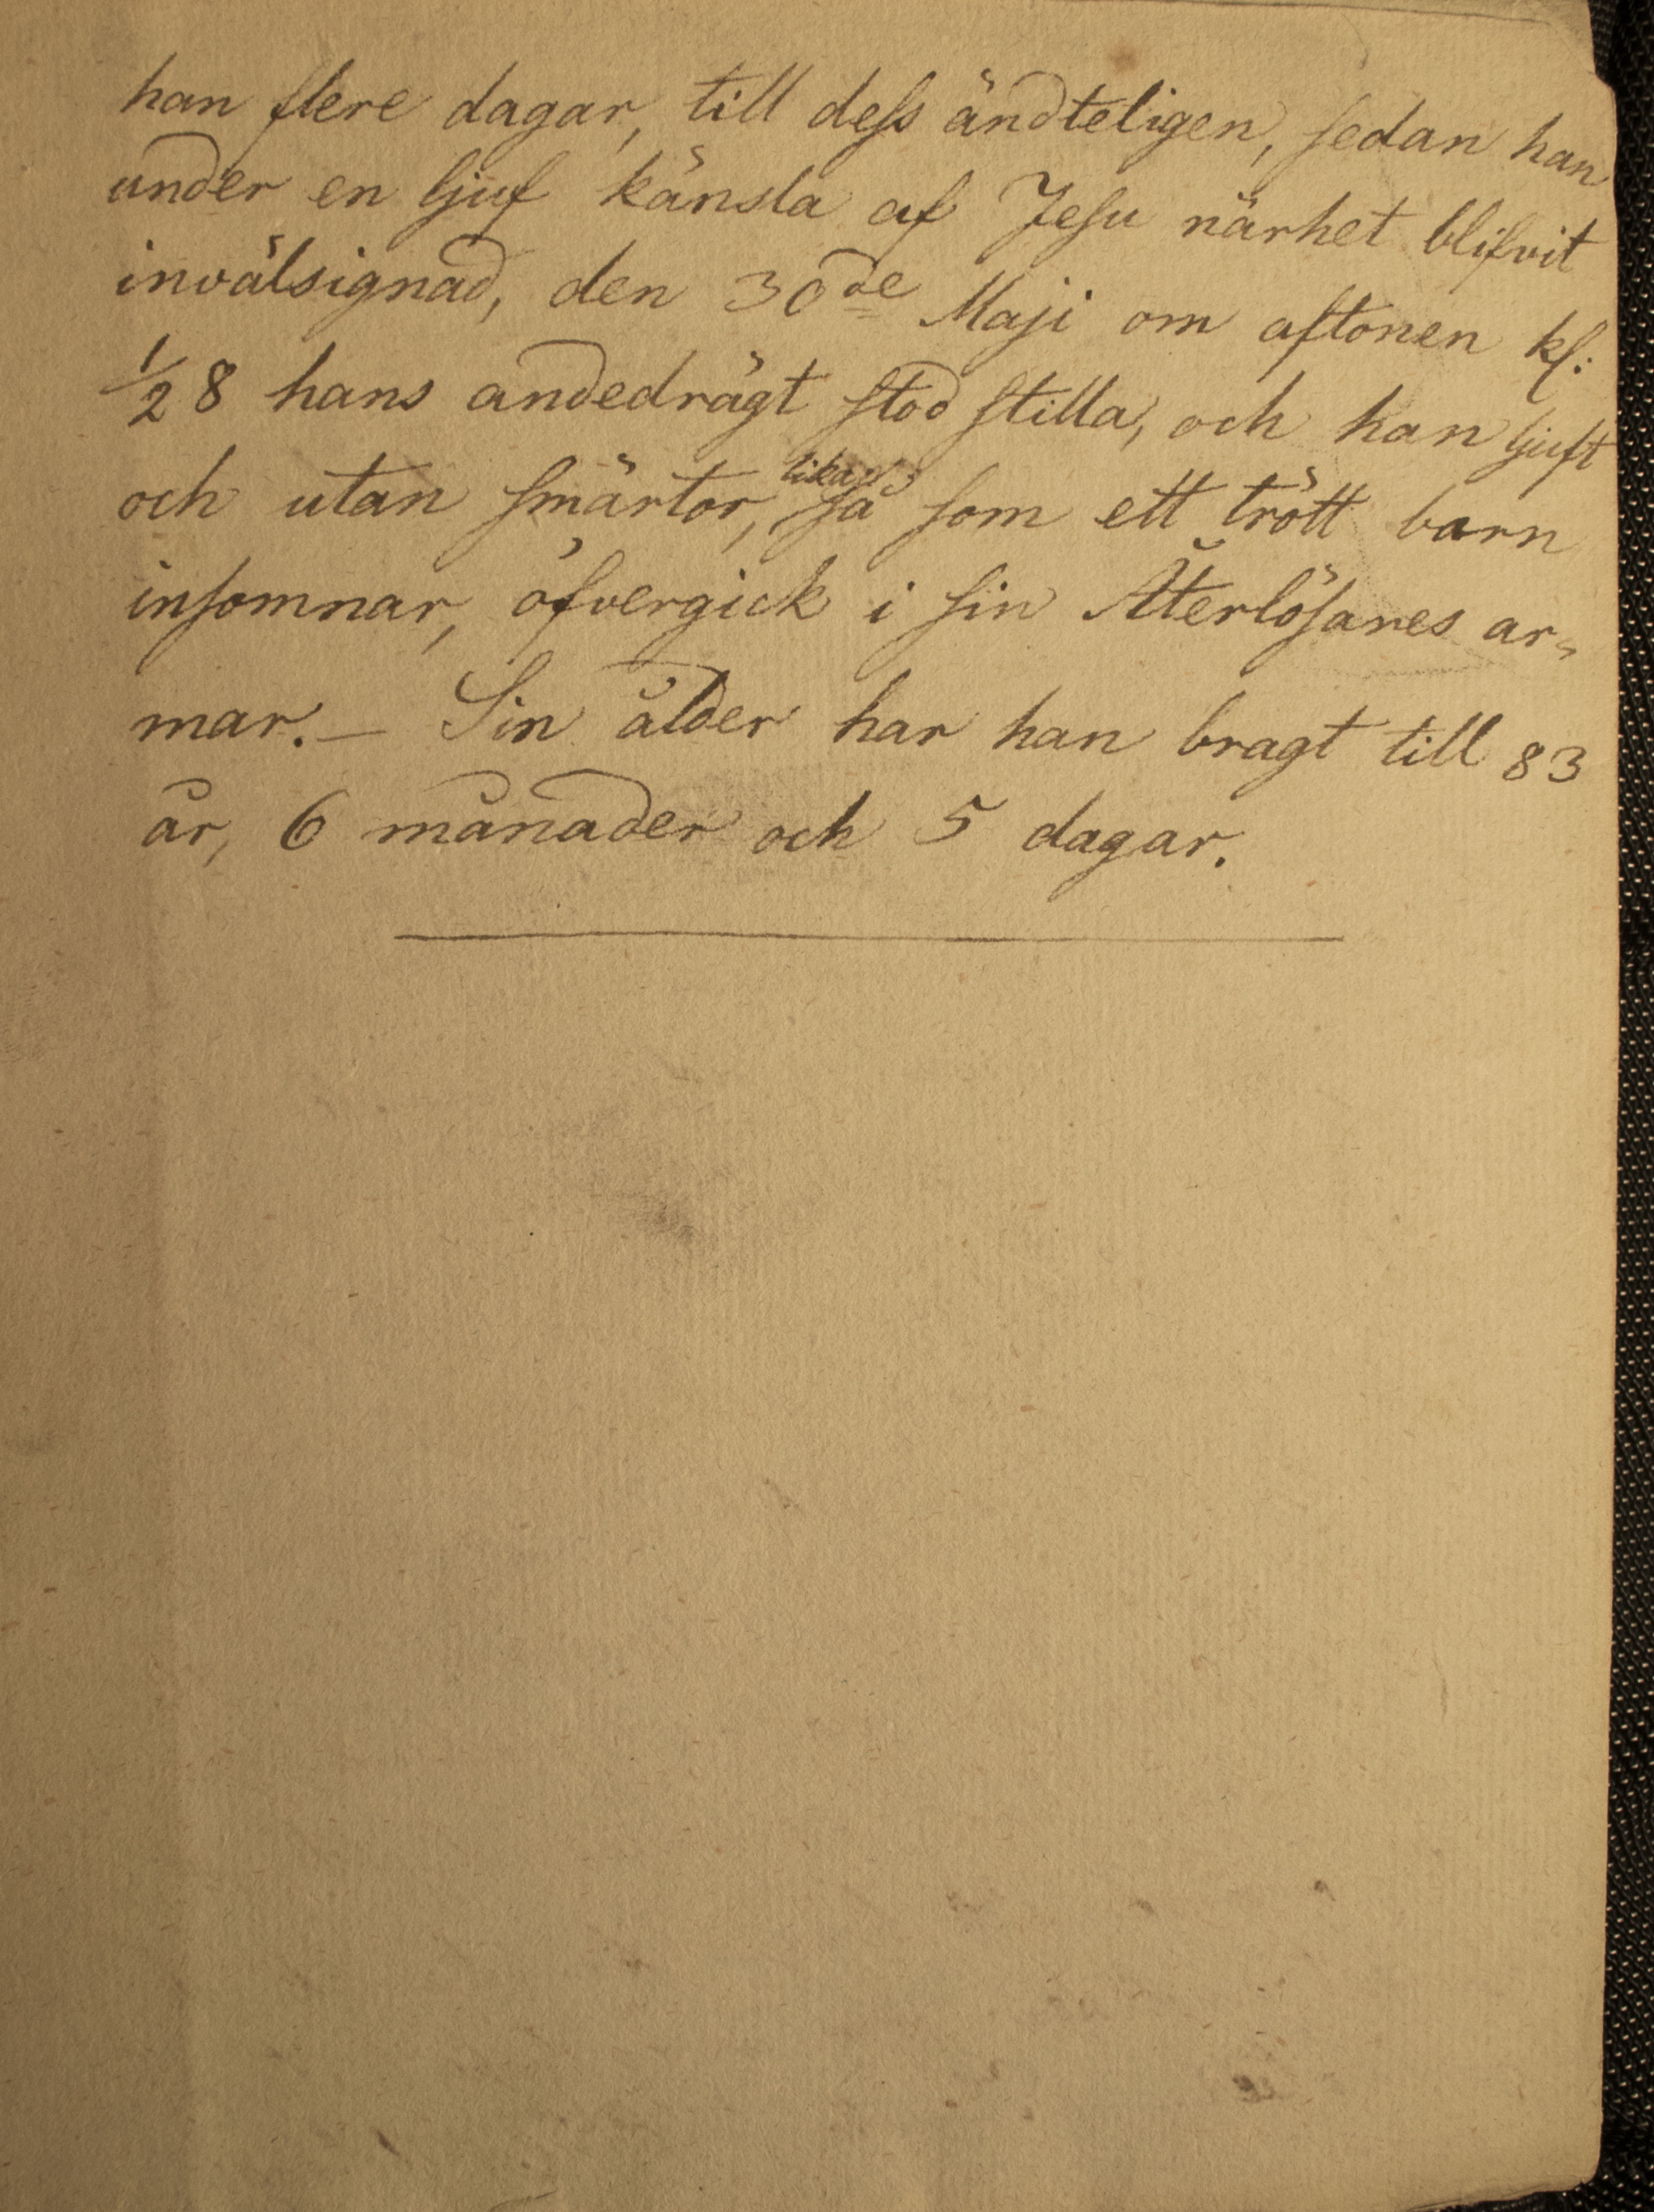 han flere dagar, till dess ändteligen, sedan han
under en ljuf känsla af Jesu närhet blifvit
invälsignad, den 30de Maji om aftonen kl:
1/2 8 hans andedrägt stod stilla, och han ljuft
och utan smärtor, likaså som ett trött barn
insomnar, öfvergick i sin Återlösares ar„
mar. — Sin ålder har han bragt till 83
år, 6 månader och 5 dagar.